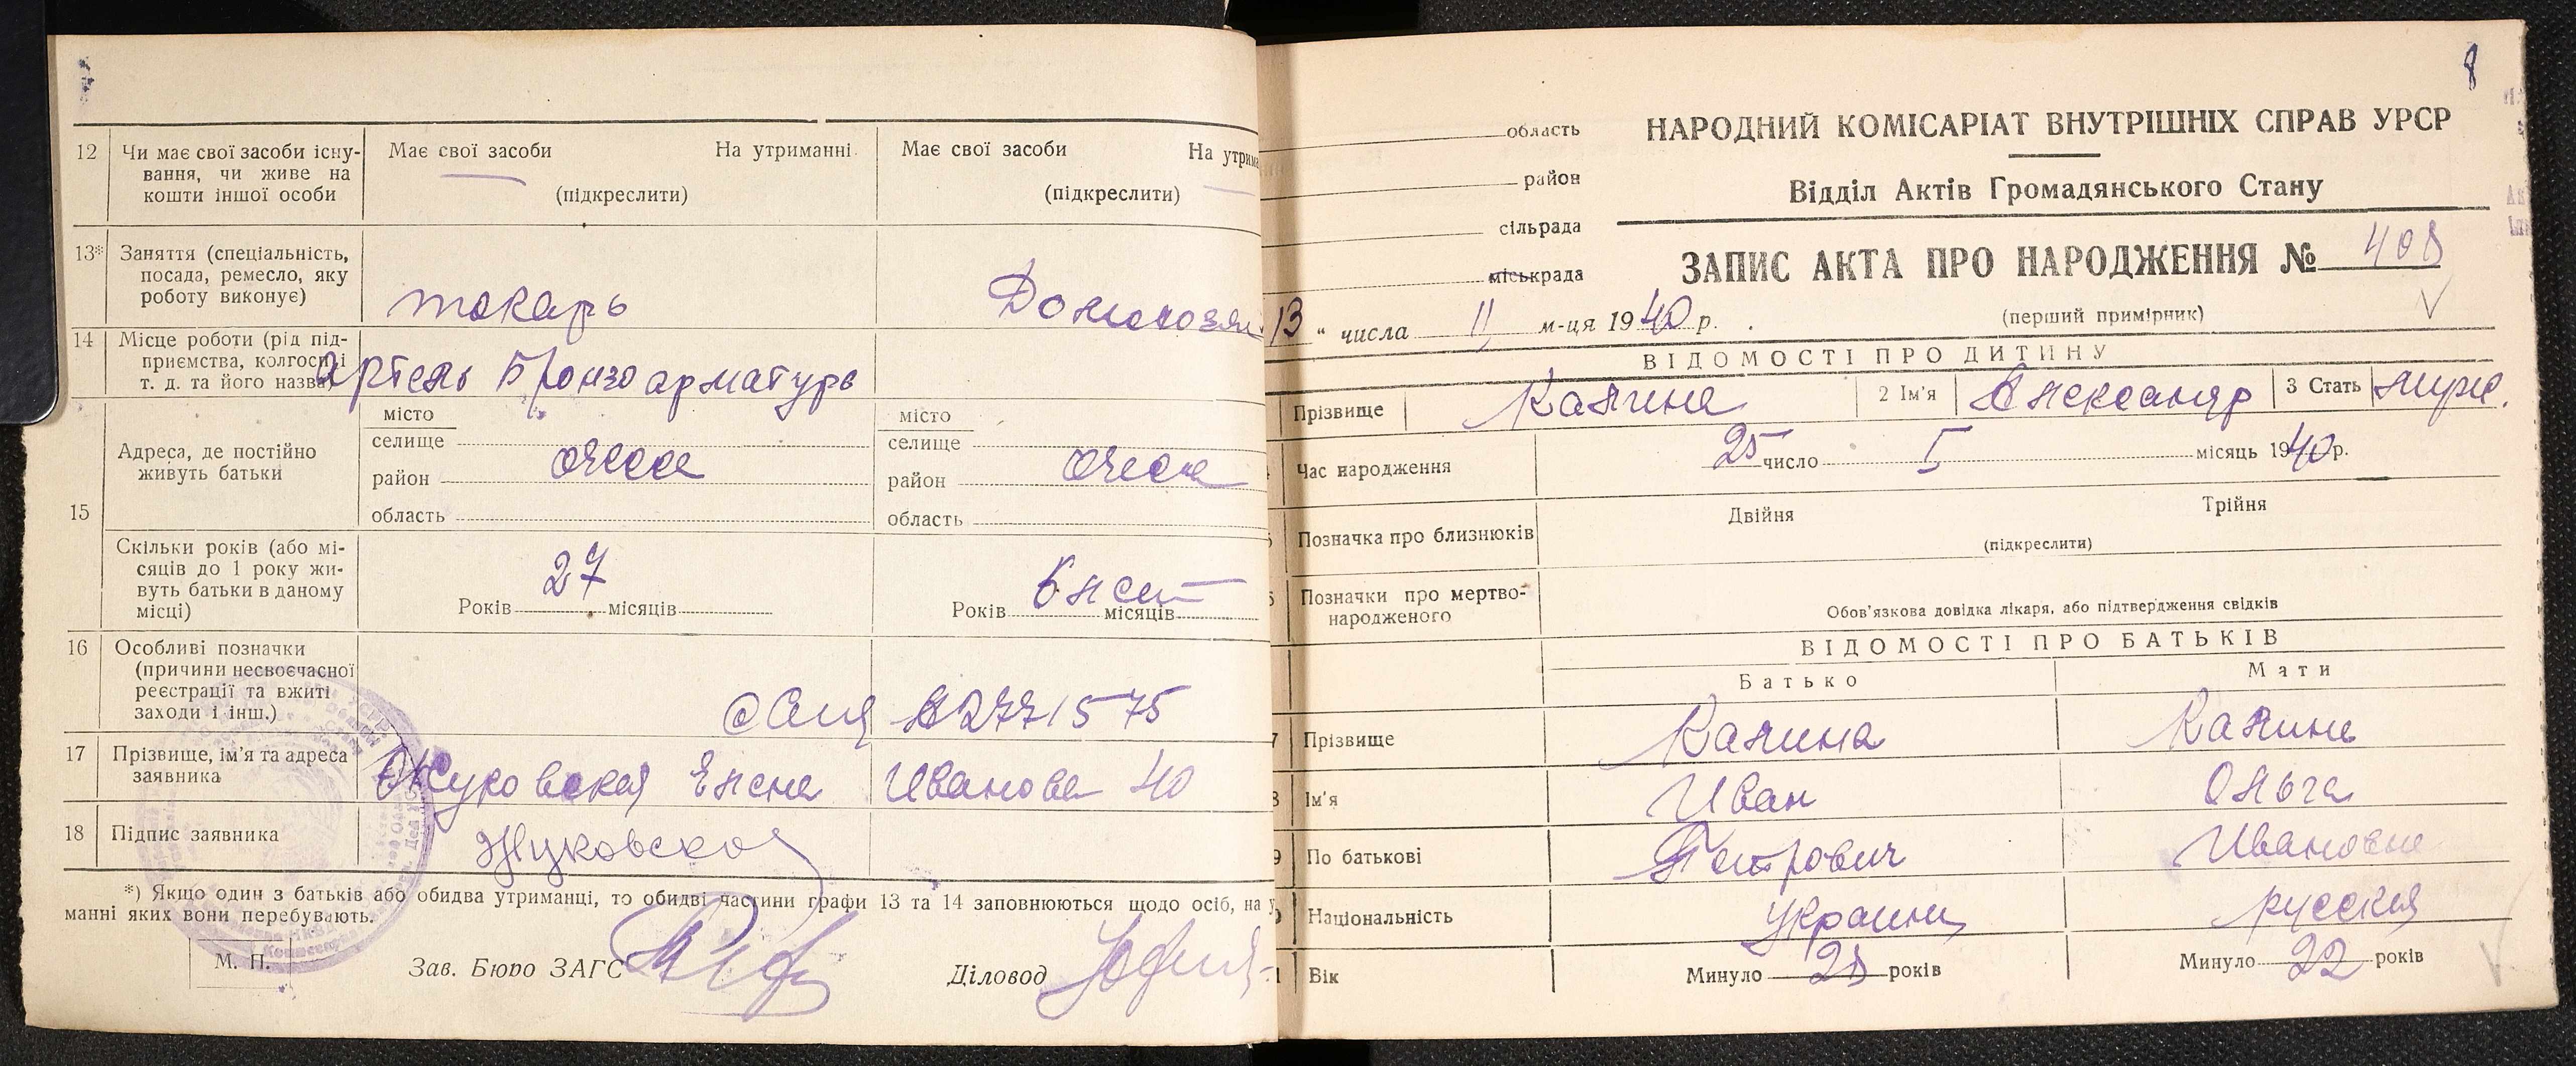 12 Чи має свої засоби існу-
вання, чи живе на
кошти іншої особи
Має свої засоби На утриманні
(підкреслити)
Має свої засоби На утрима
(підкреслити)
13* Заняття (спеціальність,
посада, ремесло, яку
роботу виконує)
токарь
Домохозяй
14 Місце роботи (рід під-
приємства, колгоспу і
т. д. та його назва)
Артель Бронзоарматура
15 Адреса, де постійно
живуть батьки
місто
селище
район Одесса
область
місто
селище
район Одесса
область
Скільки років (або мі-
сяців до 1 року жи-
вуть батьки в даному
місці)
Років 27 місяців
Років 6 лет місяців
16 Особливі позначки
(причини несвоєчасної
реєстрації та вжиті
заходи і інш.)
17 Прізвище, ім'я та адреса
заявника
Жуковская Елена Иванова 40
18 Підпис заявника
Жуковская
*) Якщо один з батьків або обидва утриманці, то обидві частини графи 13 та 14 заповнюються щодо осіб, на у
манні яких вони перебувають.
М. П.
Зав. Бюро ЗАГС
Діловод
8
область
район
сільрада
міськрада
НАРОДНИЙ КОМІСАРІАТ ВНУТРІШНІХ СПРАВ УРСР
Відділ Актів Громадянського Стану
ЗАПИС АКТА ПРО НАРОДЖЕННЯ № 408
(перший примірник)
13 " числа II м-ця 1940 р.
ВІДОМОСТІ ПРО ДИТИНУ
Прізвище Калина
2 Ім'я Александр
3 Стать муж.
Час народження 25 число I місяць 1940 р.
Позначка про близнюків
Двійня Трійня
(підкреслити)
Позначки про мертво-
народженого
Обов'язкова довідка лікаря, або підтвердження свідків
ВІДОМОСТІ ПРО БАТЬКІВ
Батько Мати
Прізвище Калина Калина
Ім'я Иван Ольга
По батькові Петрович Ивановна
Національність Украинец русская
Вік Минуло 28 років Минуло 22 років